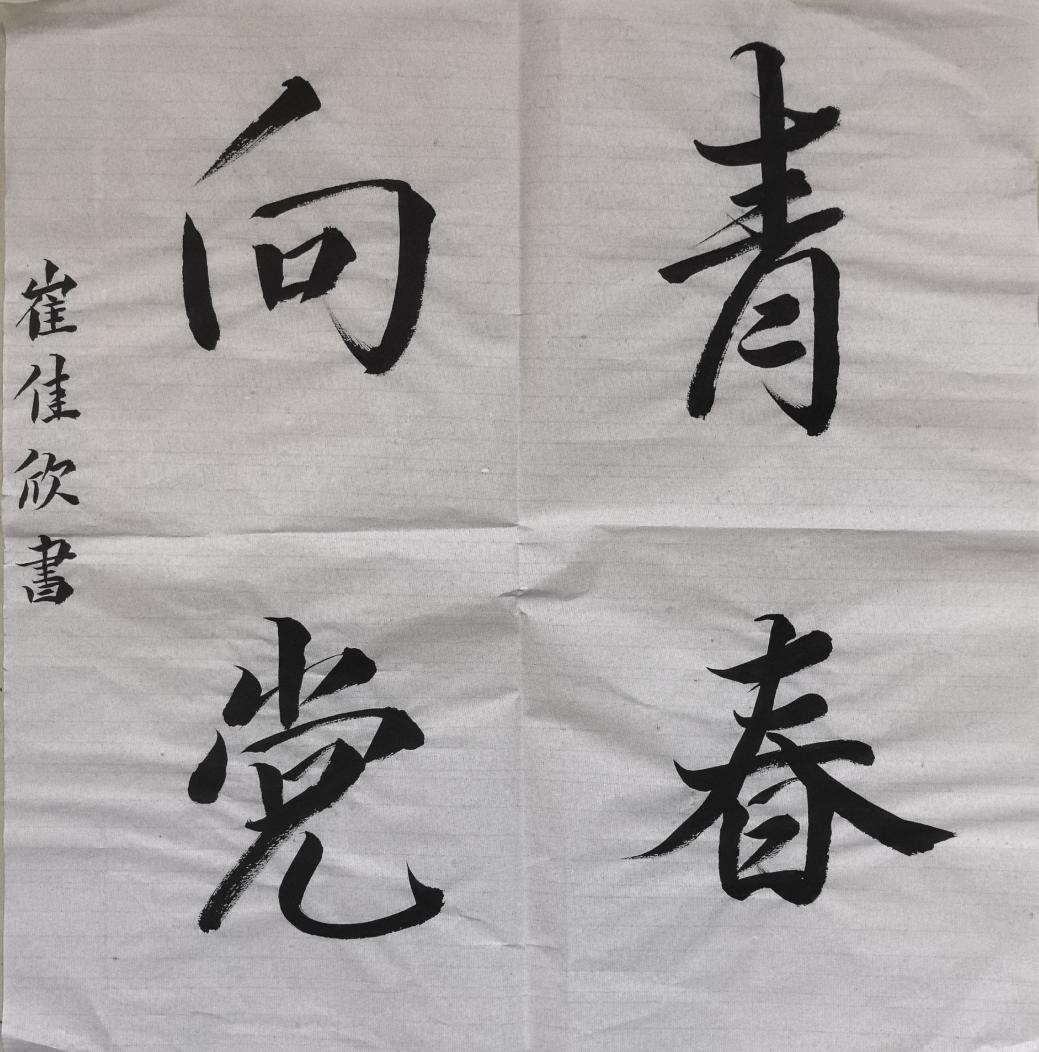 青春
向党
崔佳欣書